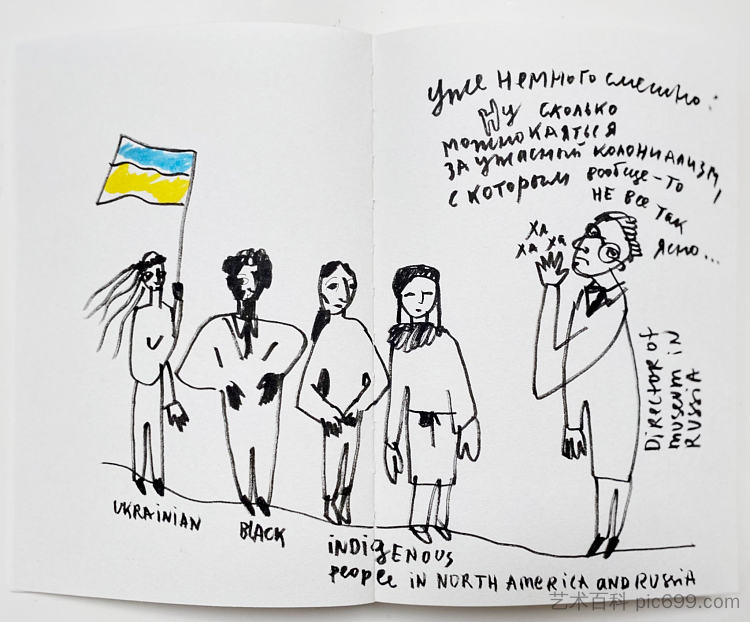 уже немного смешно:
Ну сколько
можно каяться
за ужасный колониализм,
с которым вообще-то
не все так
ясно...
ХА
ХА ХА
DiRECTOR OF
museum iN
RUSSiA
UKRAiNiAN
BLACK
iNDiGENOUS
people iN NORTH AmericA AND RUSSiA
艺术百科 pic699.com